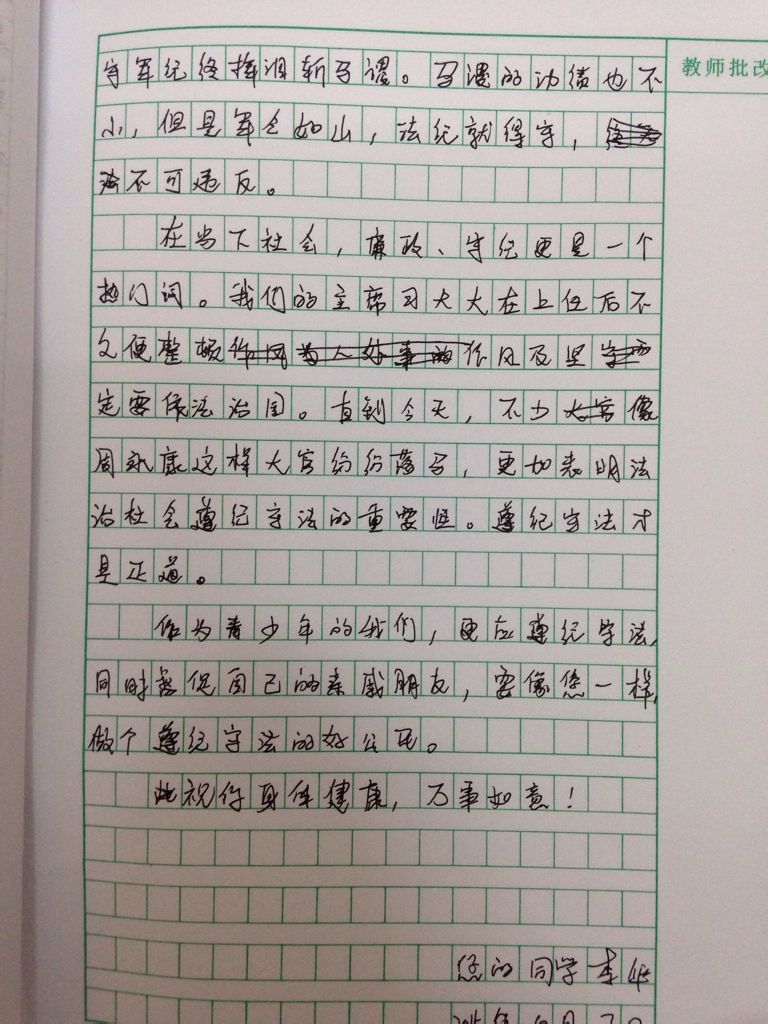 教师批改
守军纪终挥泪斩马谡。马谡的功绩也不
小，但是军令如山，法纪就得守，
法不可违反。
在当下社会，廉政、守纪更是一个
热门词。我们的主席习大大在上任后不
久便整顿作风及坚
定要依法治国。直到今天，不少像
周永康这样大官纷纷落马，更加表明法
治社会遵纪守法的重要性。遵纪守法才
是正道。
作为青少年的我们，更应遵纪守法，
同时督促自己的亲戚朋友，要像您一样，
做个遵纪守法的好公民。
此祝你身体健康，万事如意！
您的同学李华